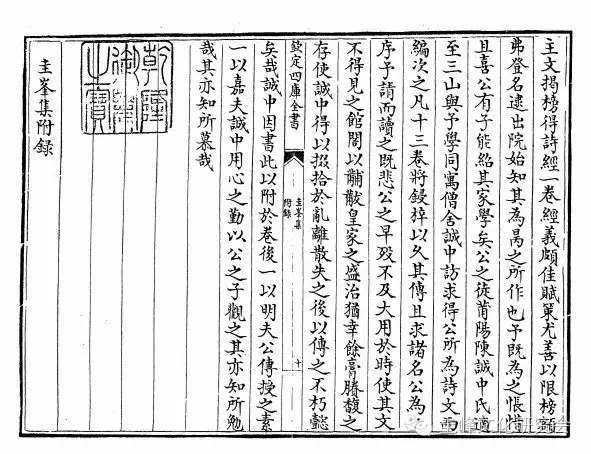 主文揭榜得詩經一卷經義頗佳賦策尤善以限榜額
弗登名逮出院始知其為昺之所作也予既為之悵惜
且喜公有子能紹其家學矣公之徒莆陽陳誠中氏適
至三山與予學同寓僧舍誠中訪求得公所為詩文而
編次之凡十三卷將鋟梓以久其傳且求諸名公為之
序予請而讀之既悲公之早歿不及大用於時使其文
不得見之館閣以黼黻皇家之盛治猶幸餘膏賸馥之
欽定四庫全書
圭峯集
附錄
十
存使誠中得以掇拾於亂離散失之後以傳之不朽懿
矣哉誠中因書此以附於卷後一以明夫公傳授之素
一以嘉夫誠中用心之勤以公之子觀之其亦知所勉
哉其亦知所慕哉
乾隆
御覽
之寶
圭峯集附錄
圭峰文化研究会